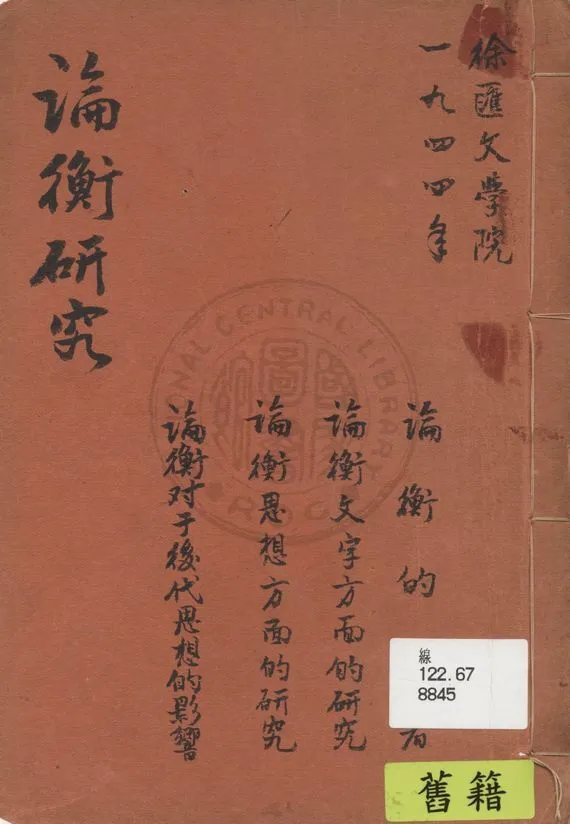 徐匯文學院
一九四四年
論衡的
論衡文字方面的研究
論衡思想方面的研究
論衡对于後代思想的影響
論衡研究
NATIONAL CENTRAL LIBRARY
R.O.C.
線
122.67
8845
舊籍